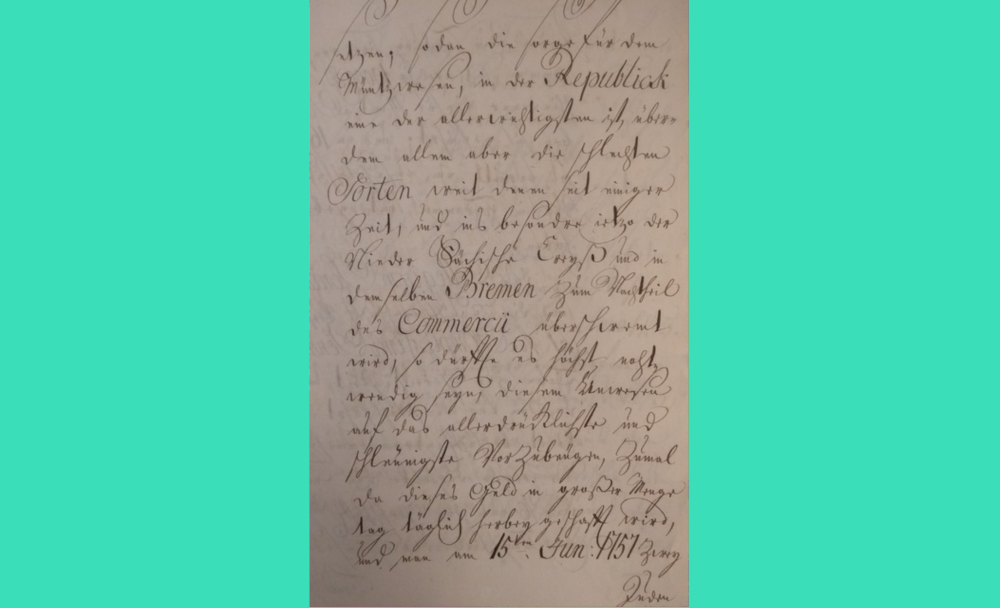 etzen, sodan die sorge für dem
Müntzwesen, in der Republick
eine der allerwichtigsten ist, über-
dem allem aber die schlechten
Sorten weit denen seit einiger
Zeit, und ins besondre ietzo der
Nieder Sächische Creyß und in
demselben Bremen zum Nachtheil
des Commercii überschwemt
wird, so dürffte es höchst noht-
wendig seyn, diesem Unwesen
auf das allerdrücklichste und
schleunigste Vorzubeugen, Zumal
da dieses Geld in großer Menge
tag täglich herbey geschafft wird,
und man am 15ten Jun: 1751 Zwey
Juden